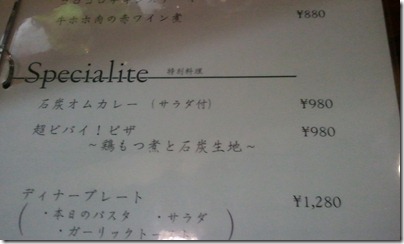 牛ホホ肉の赤ワイン煮 ¥880
Specialite 特別料理
石炭オムカレー (サラダ付) ¥980
超ビバイ!ピザ ¥980
~鶏もつ煮と石炭生地~
ディナープレート ¥1,280
・本日のパスタ ・サラダ
・ガーリックトースト